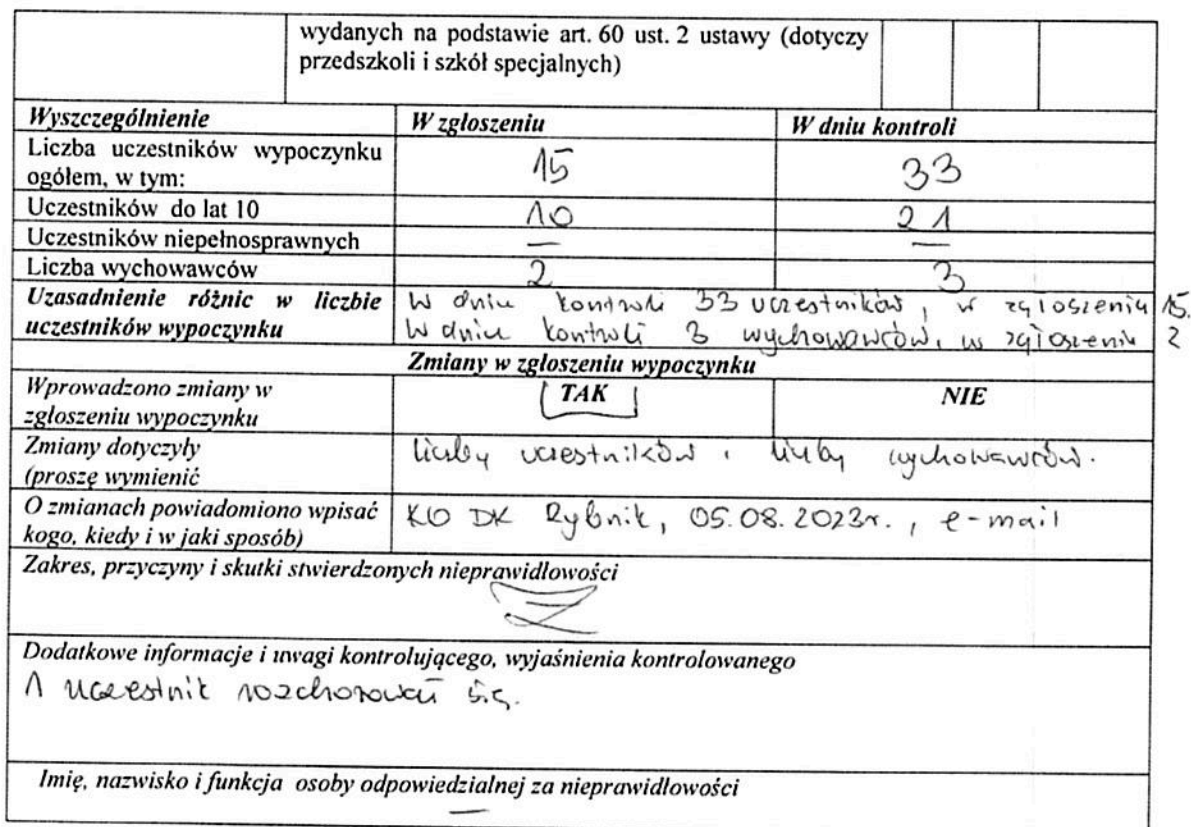 wydanych na podstawie art. 60 ust. 2 ustawy (dotyczy
przedszkoli i szkół specjalnych)
Wyszczególnienie W zgłoszeniu W dniu kontroli
Liczba uczestników wypoczynku
ogółem, w tym: 15 33
Uczestników do lat 10 10 21
Uczestników niepełnosprawnych — —
Liczba wychowawców 2 3
Uzasadnienie różnic w liczbie
uczestników wypoczynku
W dniu kontroli 33 uczestników, w zgłoszeniu 15.
W dniu kontroli 3 wychowawców, w zgłoszeniu 2
Zmiany w zgłoszeniu wypoczynku
Wprowadzono zmiany w
zgłoszeniu wypoczynku
TAK NIE
Zmiany dotyczyły
(proszę wymienić
liczby uczestników i liczby wychowawców.
O zmianach powiadomiono wpisać
kogo, kiedy i w jaki sposób)
KO DK Rybnik, 05.08.2023r., e-mail
Zakres, przyczyny i skutki stwierdzonych nieprawidłowości
Dodatkowe informacje i uwagi kontrolującego, wyjaśnienia kontrolowanego
1 uczestnik rozchorował się.
Imię, nazwisko i funkcja osoby odpowiedzialnej za nieprawidłowości
—